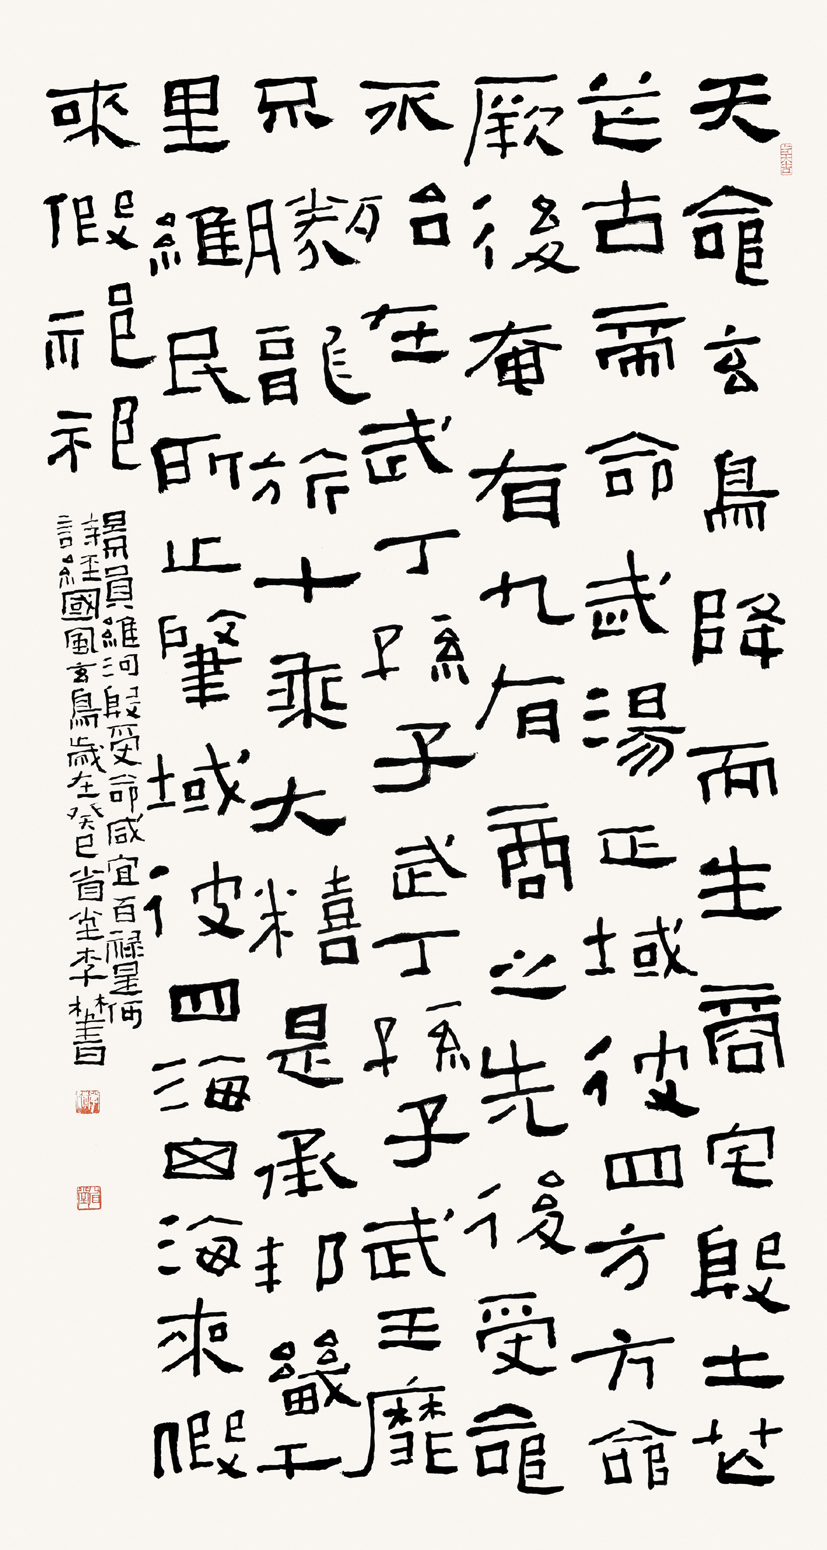 天命玄鳥降而生商宅殷土芒
芒古帝命武湯正域彼四方方命
厥後奄有九有商之先後受命
不殆在武丁孫子武丁孫子武王靡
不勝龍旂十乘大糦是承邦畿千
里維民所止肇域彼四海四海來假
來假祁祁
景員維河殷受命咸宜百祿是何
詩經國風玄鳥歲在癸巳省堂李書